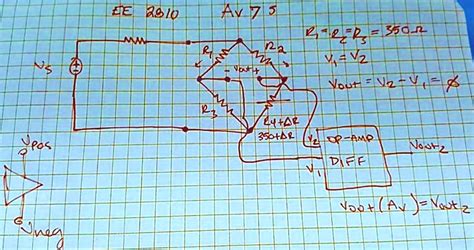 EE 2810 Av 75
R1 = R2 = R3 = 350Ω
V1 = V2
Vout = V2 - V1 = ∅
Vs
R1
R2
- Vout +
R3
R4 + ΔR
350 + ΔR
Vpos
Vneg
V2
V1
OP-AMP
DIFF
Vout2
Vout (Av) = Vout2